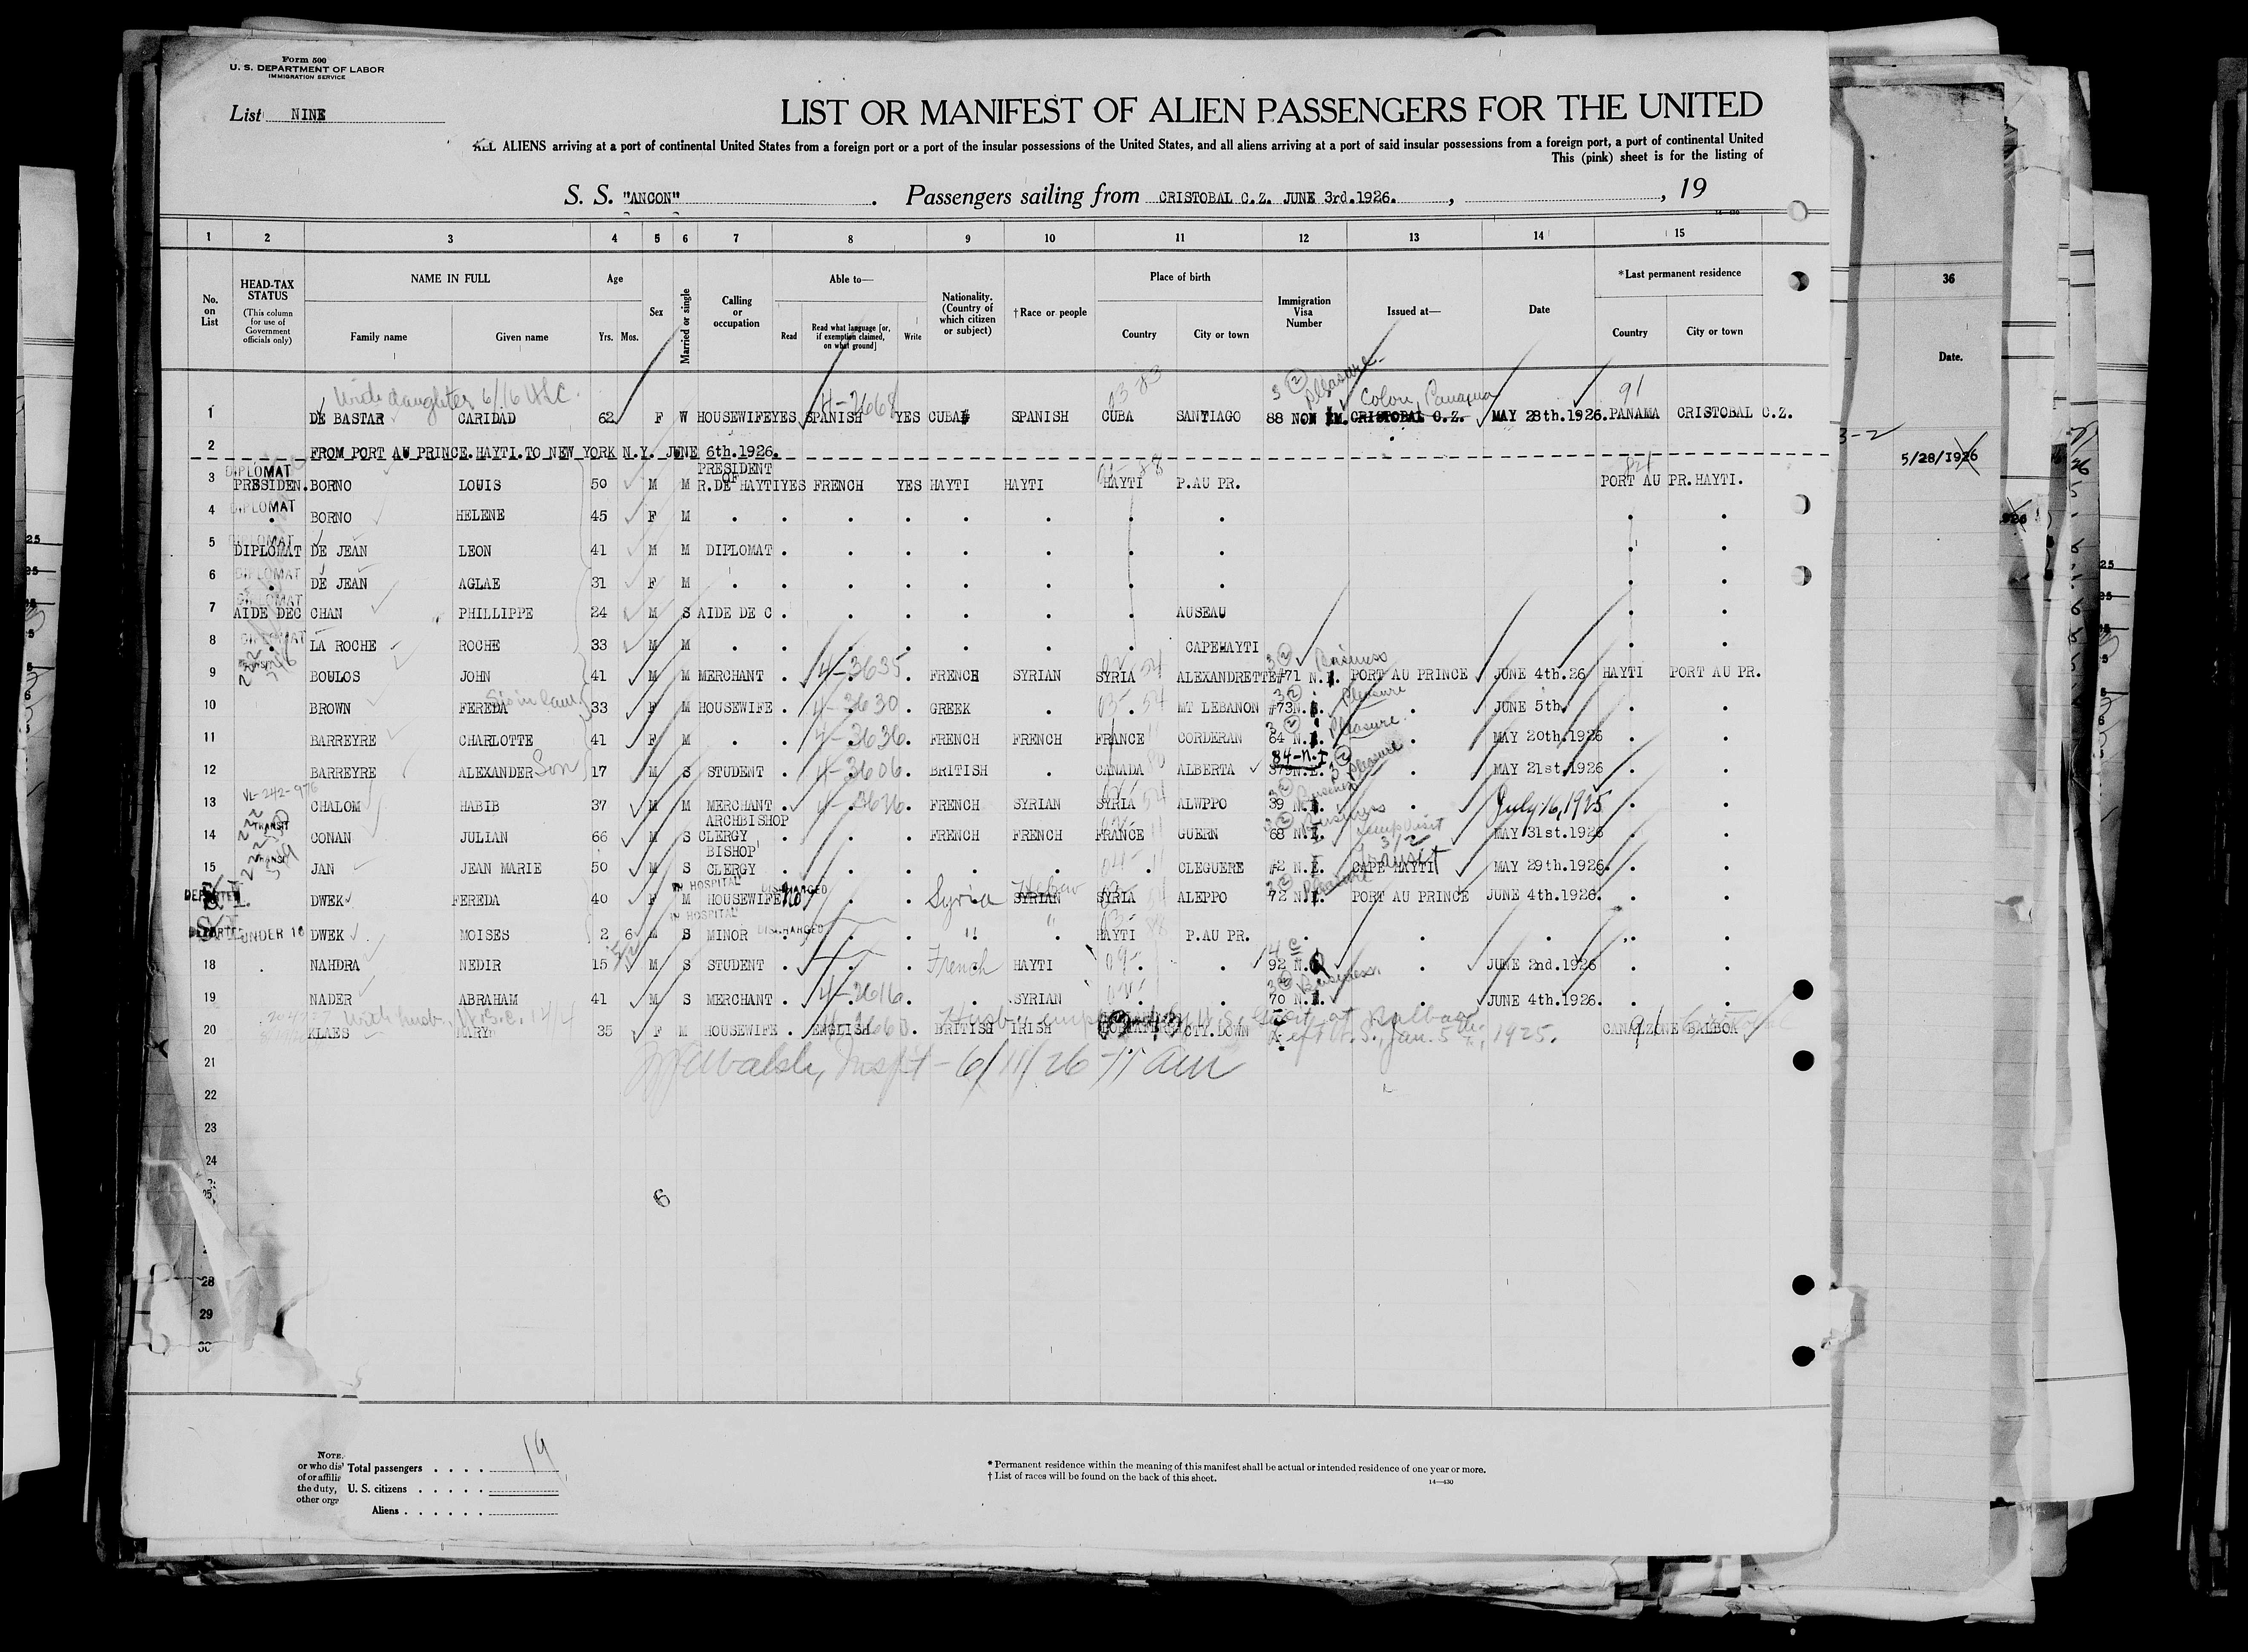 Form 500
U. S. DEPARTMENT OF LABOR
IMMIGRATION SERVICE
List NINE
LIST OR MANIFEST OF ALIEN PASSENGERS FOR THE UNITED
ALL ALIENS arriving at a port of continental United States from a foreign port or a port of the insular possessions of the United States, and all aliens arriving at a port of said insular possessions from a foreign port, a port of continental United
This (pink) sheet is for the listing of
S. S. "ANCON" . Passengers sailing from CRISTOBAL C.Z. JUNE 3rd.1926. , , 19
14—430
1 2 3 4 5 6 7 8 9 10 11 12 13 14 15
No. on List
HEAD-TAX STATUS
(This column for use of Government officials only)
NAME IN FULL
Family name Given name
Age
Yrs. Mos.
Sex
Married or single
Calling or occupation
Able to—
Read Read what language [or, if exemption claimed, on what ground] Write
Nationality. (Country of which citizen or subject)
†Race or people
Place of birth
Country City or town
Immigration Visa Number
Issued at—
Date
*Last permanent residence
Country City or town
36
Date.
5/28/1926
With daughter 6/16 4-2668 3 2 Pleasure Colon, Panama 91
1 DE BASTAR CARIDAD 62 F W HOUSEWIFE YES SPANISH YES CUBA SPANISH CUBA SANTIAGO 88 NON IM. CRISTOBAL C.Z. MAY 28th.1926. PANAMA CRISTOBAL C.Z.
2 FROM PORT AU PRINCE.HAYTI.TO NEW YORK N.Y. JUNE 6th.1926.
DIPLOMAT PRESIDENT OF
3 PRESIDEN. BORNO LOUIS 50 M M R.DE HAYTI YES FRENCH YES HAYTI HAYTI HAYTI P.AU PR. PORT AU PR.HAYTI.
DIPLOMAT
4 BORNO HELENE 45 F M
DIPLOMAT
5 DIPLOMAT DE JEAN LEON 41 M M DIPLOMAT
DIPLOMAT
6 DE JEAN AGLAE 31 F M
DIPLOMAT
7 AIDE DEC CHAN PHILLIPPE 24 M S AIDE DE C AUSEAU
DIPLOMAT
8 LA ROCHE ROCHE 33 M M CAPEHAYTI
9 BOULOS JOHN 41 M M MERCHANT 4-3635 FRENCH SYRIAN SYRIA ALEXANDRETTE #71 N.I. Business PORT AU PRINCE JUNE 4th.26 HAYTI PORT AU PR.
10 BROWN FEREDA Sis in law 33 F M HOUSEWIFE 4-3630 GREEK MT LEBANON #73N.I. Pleasure JUNE 5th.
11 BARREYRE CHARLOTTE 41 F M 4-3636 FRENCH FRENCH FRANCE CORDERAN 64 N.I. Pleasure MAY 20th.1926
84-N.I
12 BARREYRE ALEXANDER Son 17 M S STUDENT 4-3606 BRITISH CANADA ALBERTA Pleasure MAY 21st.1926
VL-242-976
13 CHALOM HABIB 37 M M MERCHANT FRENCH SYRIAN SYRIA ALWPPO 39 N.I. July 16, 1925
TRANSIT ARCHBISHOP
14 CONAN JULIAN 66 M S CLERGY FRENCH FRENCH FRANCE GUERN 68 N.I. MAY 31st.1926
TRANSIT BISHOP
15 JAN JEAN MARIE 50 M S CLERGY CLEGUERE #2 N.I. CAPE HAYTI MAY 29th.1926.
IN HOSPITAL DISCHARGED Hebrew
DWEK FEREDA 40 F M HOUSEWIFE No Syria SYRIAN SYRIA ALEPPO 72 N.I. Pleasure PORT AU PRINCE JUNE 4th.1926.
IN HOSPITAL DISCHARGED
UNDER 16 DWEK MOISES 2 6 M S MINOR " " HAYTI P.AU PR.
18 NAHDRA NEDIR 15 M S STUDENT French HAYTI 92 N. JUNE 2nd.1926
19 NADER ABRAHAM 41 M S MERCHANT 4-2616 SYRIAN 70 N.I. Business JUNE 4th.1926.
20 KLAES MARY 35 F M HOUSEWIFE ENGLISH BRITISH IRISH CTY.DOWN Left U.S. Jan. 5th, 1925. CANALZONE BALBOA
21 Walsh, Inspt - 6/11/26 - 11 am
22
23
24
25
28
29
30
6
Total passengers 19
U. S. citizens
Aliens
NOTE.
or who dis
of or affilia
the duty,
other orga
* Permanent residence within the meaning of this manifest shall be actual or intended residence of one year or more.
† List of races will be found on the back of this sheet.
14—430